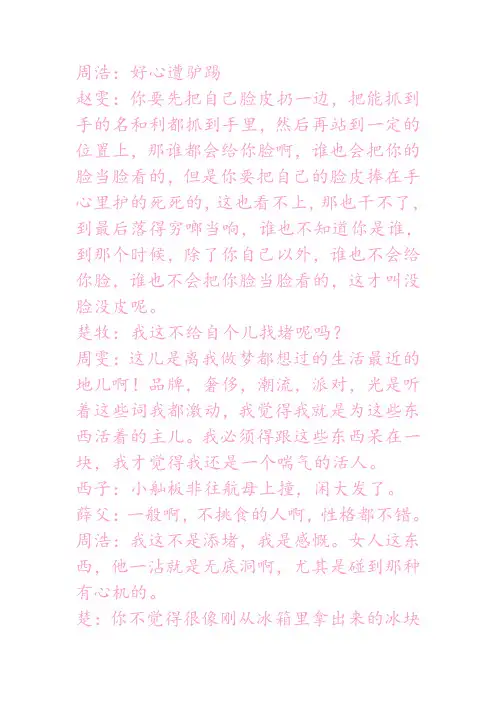 周浩：好心遭驴踢
赵雯：你要先把自己脸皮扔一边，把能抓到
手的名和利都抓到手里，然后再站到一定的
位置上，那谁都会给你脸啊，谁也会把你的
脸当脸看的，但是你要把自己的脸皮捧在手
心里护的死死的，这也看不上，那也干不了，
到最后落得穷啷当响，谁也不知道你是谁，
到那个时候，除了你自己以外，谁也不会给
你脸，谁也不会把你脸当脸看的，这才叫没
脸没皮呢。
楚牧：我这不给自个儿找堵呢吗？
周雯：这儿是离我做梦都想过的生活最近的
地儿啊！品牌，奢侈，潮流，派对，光是听
着这些词我都激动，我觉得我就是为这些东
西活着的主儿。我必须得跟这些东西呆在一
块，我才觉得我还是一个喘气的活人。
西子：小舢板非往航母上撞，闲大发了。
薛父：一般啊，不挑食的人啊，性格都不错。
周浩：我这不是添堵，我是感慨。女人这东
西，他一沾就是无底洞啊，尤其是碰到那种
有心机的。
楚：你不觉得很像刚从冰箱里拿出来的冰块